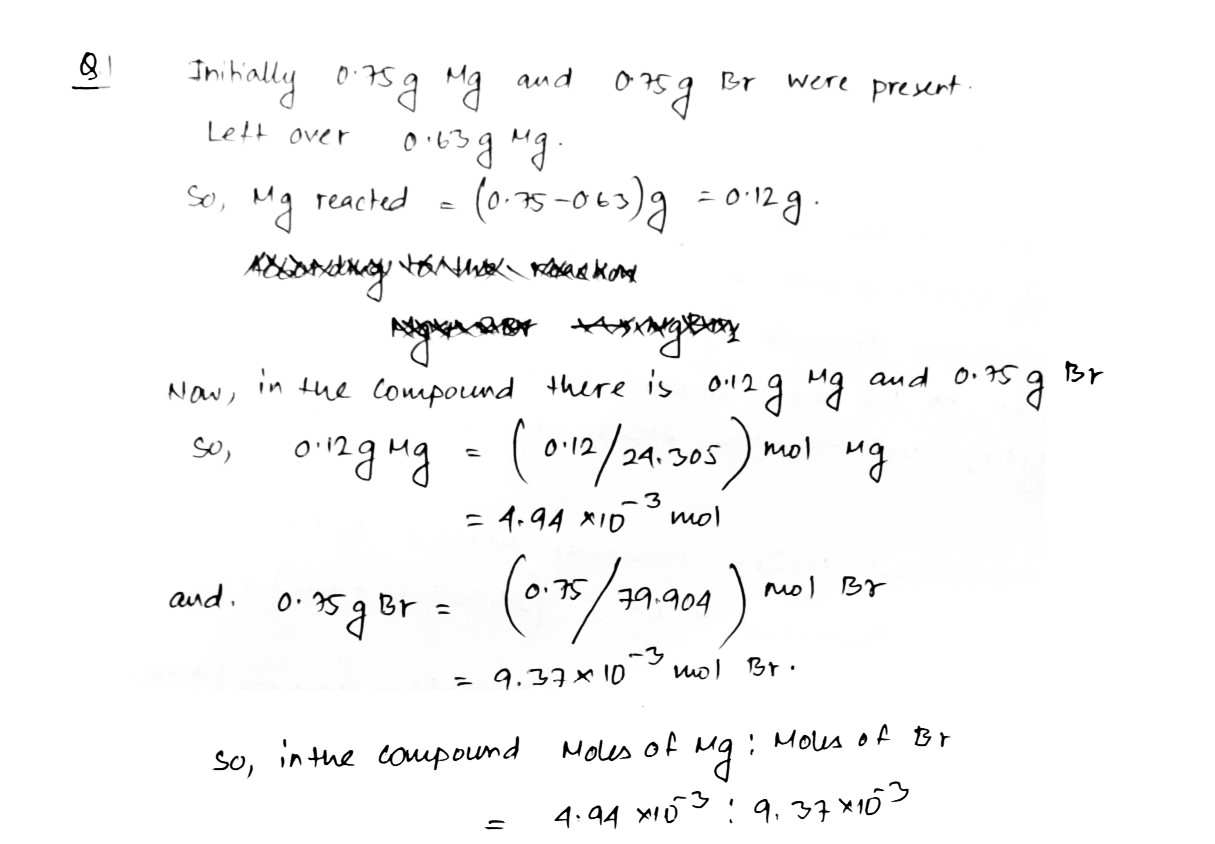 Q1 Initially 0.75g Mg and 0.75g Br were present.
Left over 0.63g Mg.
So, Mg reacted = (0.75-0.63)g = 0.12g.
Now, in the compound there is 0.12g Mg and 0.75g Br
So, 0.12g Mg = (0.12/24.305) mol Mg
= 4.94 ×10⁻³ mol
and. 0.75g Br = (0.75/79.904) mol Br
= 9.37×10⁻³ mol Br.
So, in the compound Moles of Mg : Moles of Br
= 4.94 ×10⁻³ : 9.37×10⁻³